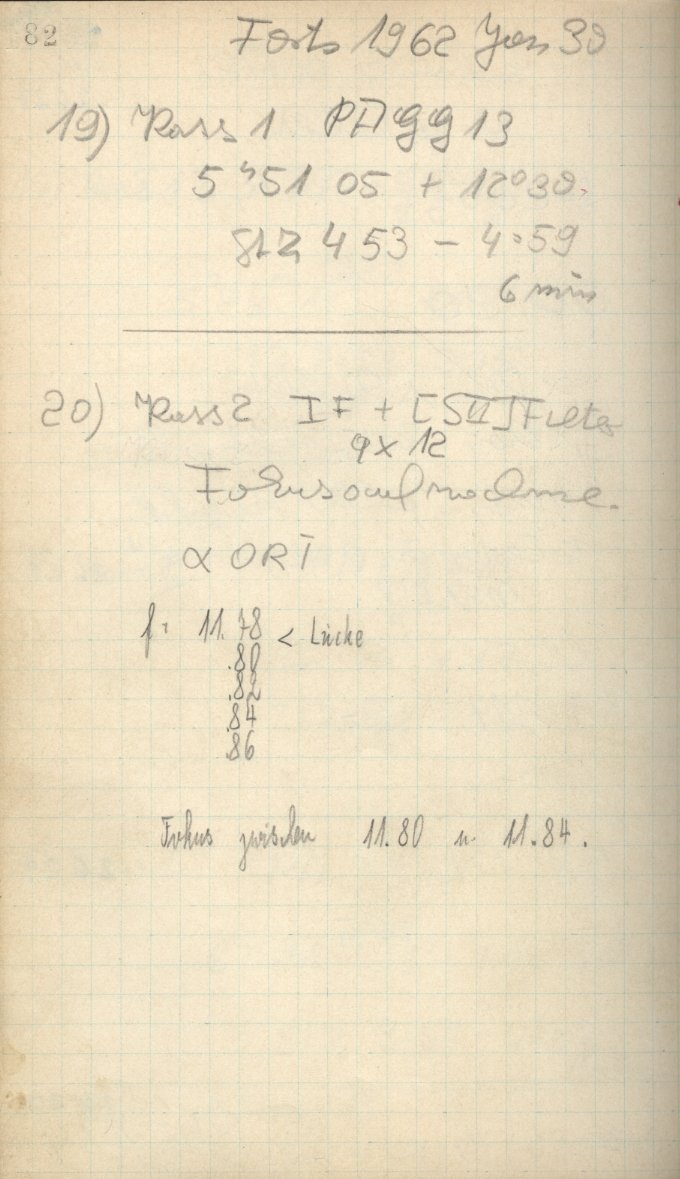 82
Forts 1962 Jan 30
19) Kass 1 PA gg 13
5 h 51 05 + 12° 30
StZ 4 53 - 4 59
6 min
20) Kass 2 IF + [SII] Filter
9 x 12
Fokusaufnahme.
α ORI
f = 11.78 < Lücke
.80
.82
.84
.86
Fokus zwischen 11.80 u. 11.84.